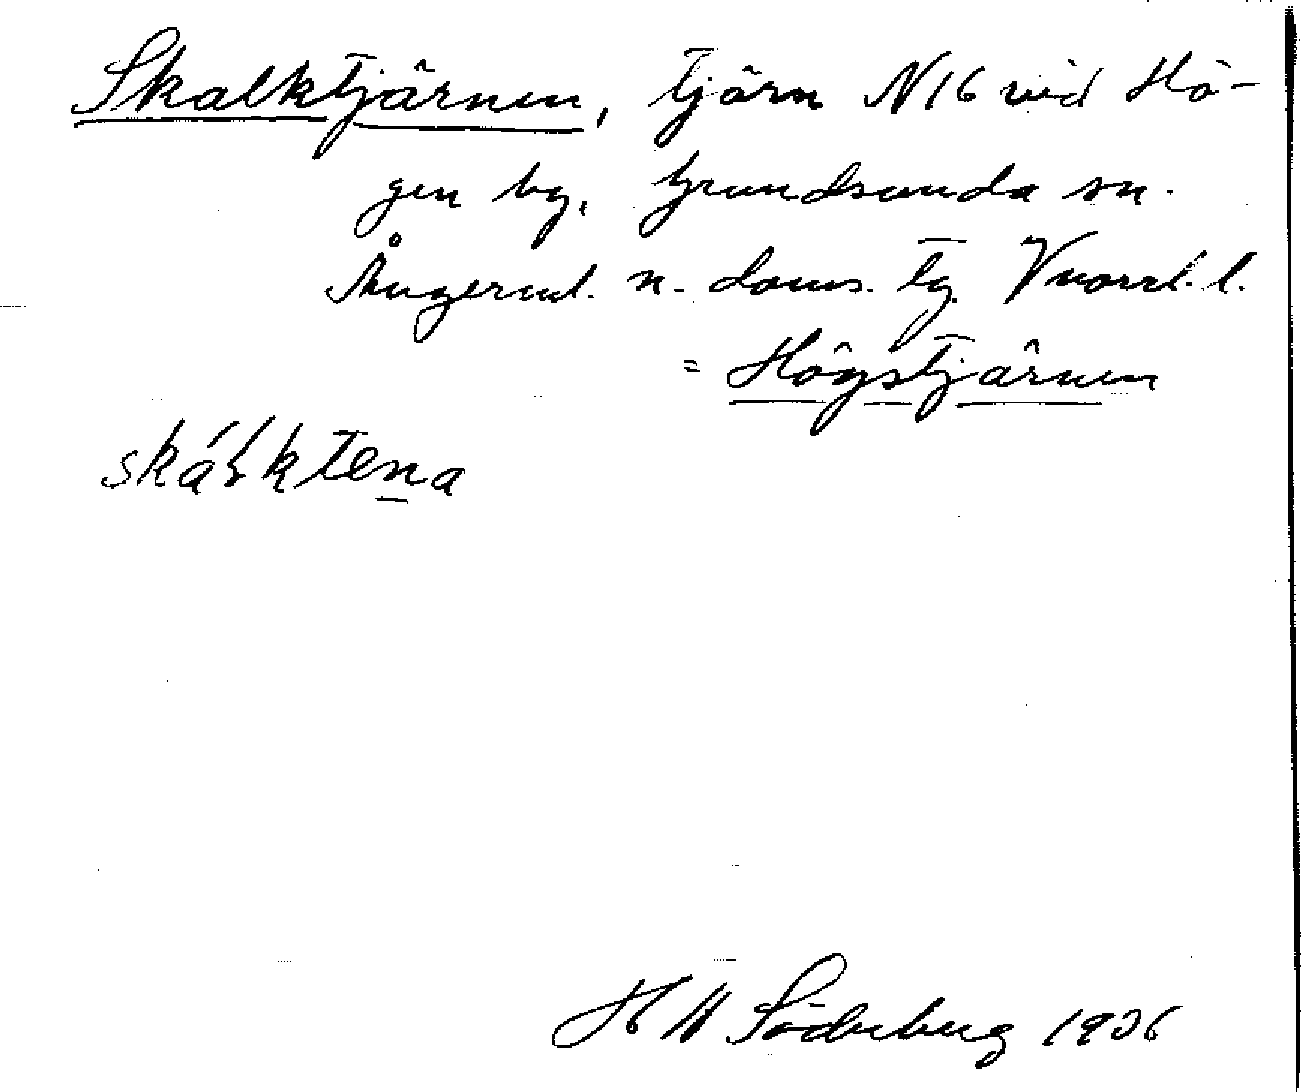 Skalktjärnen, tjärn N16 vid Hö-
gen by, Grundsunda sn.
Ångerml. n. doms. tg. Vnorrl. l.
= Högstjärnen
skálktena
H W Söderberg 1936